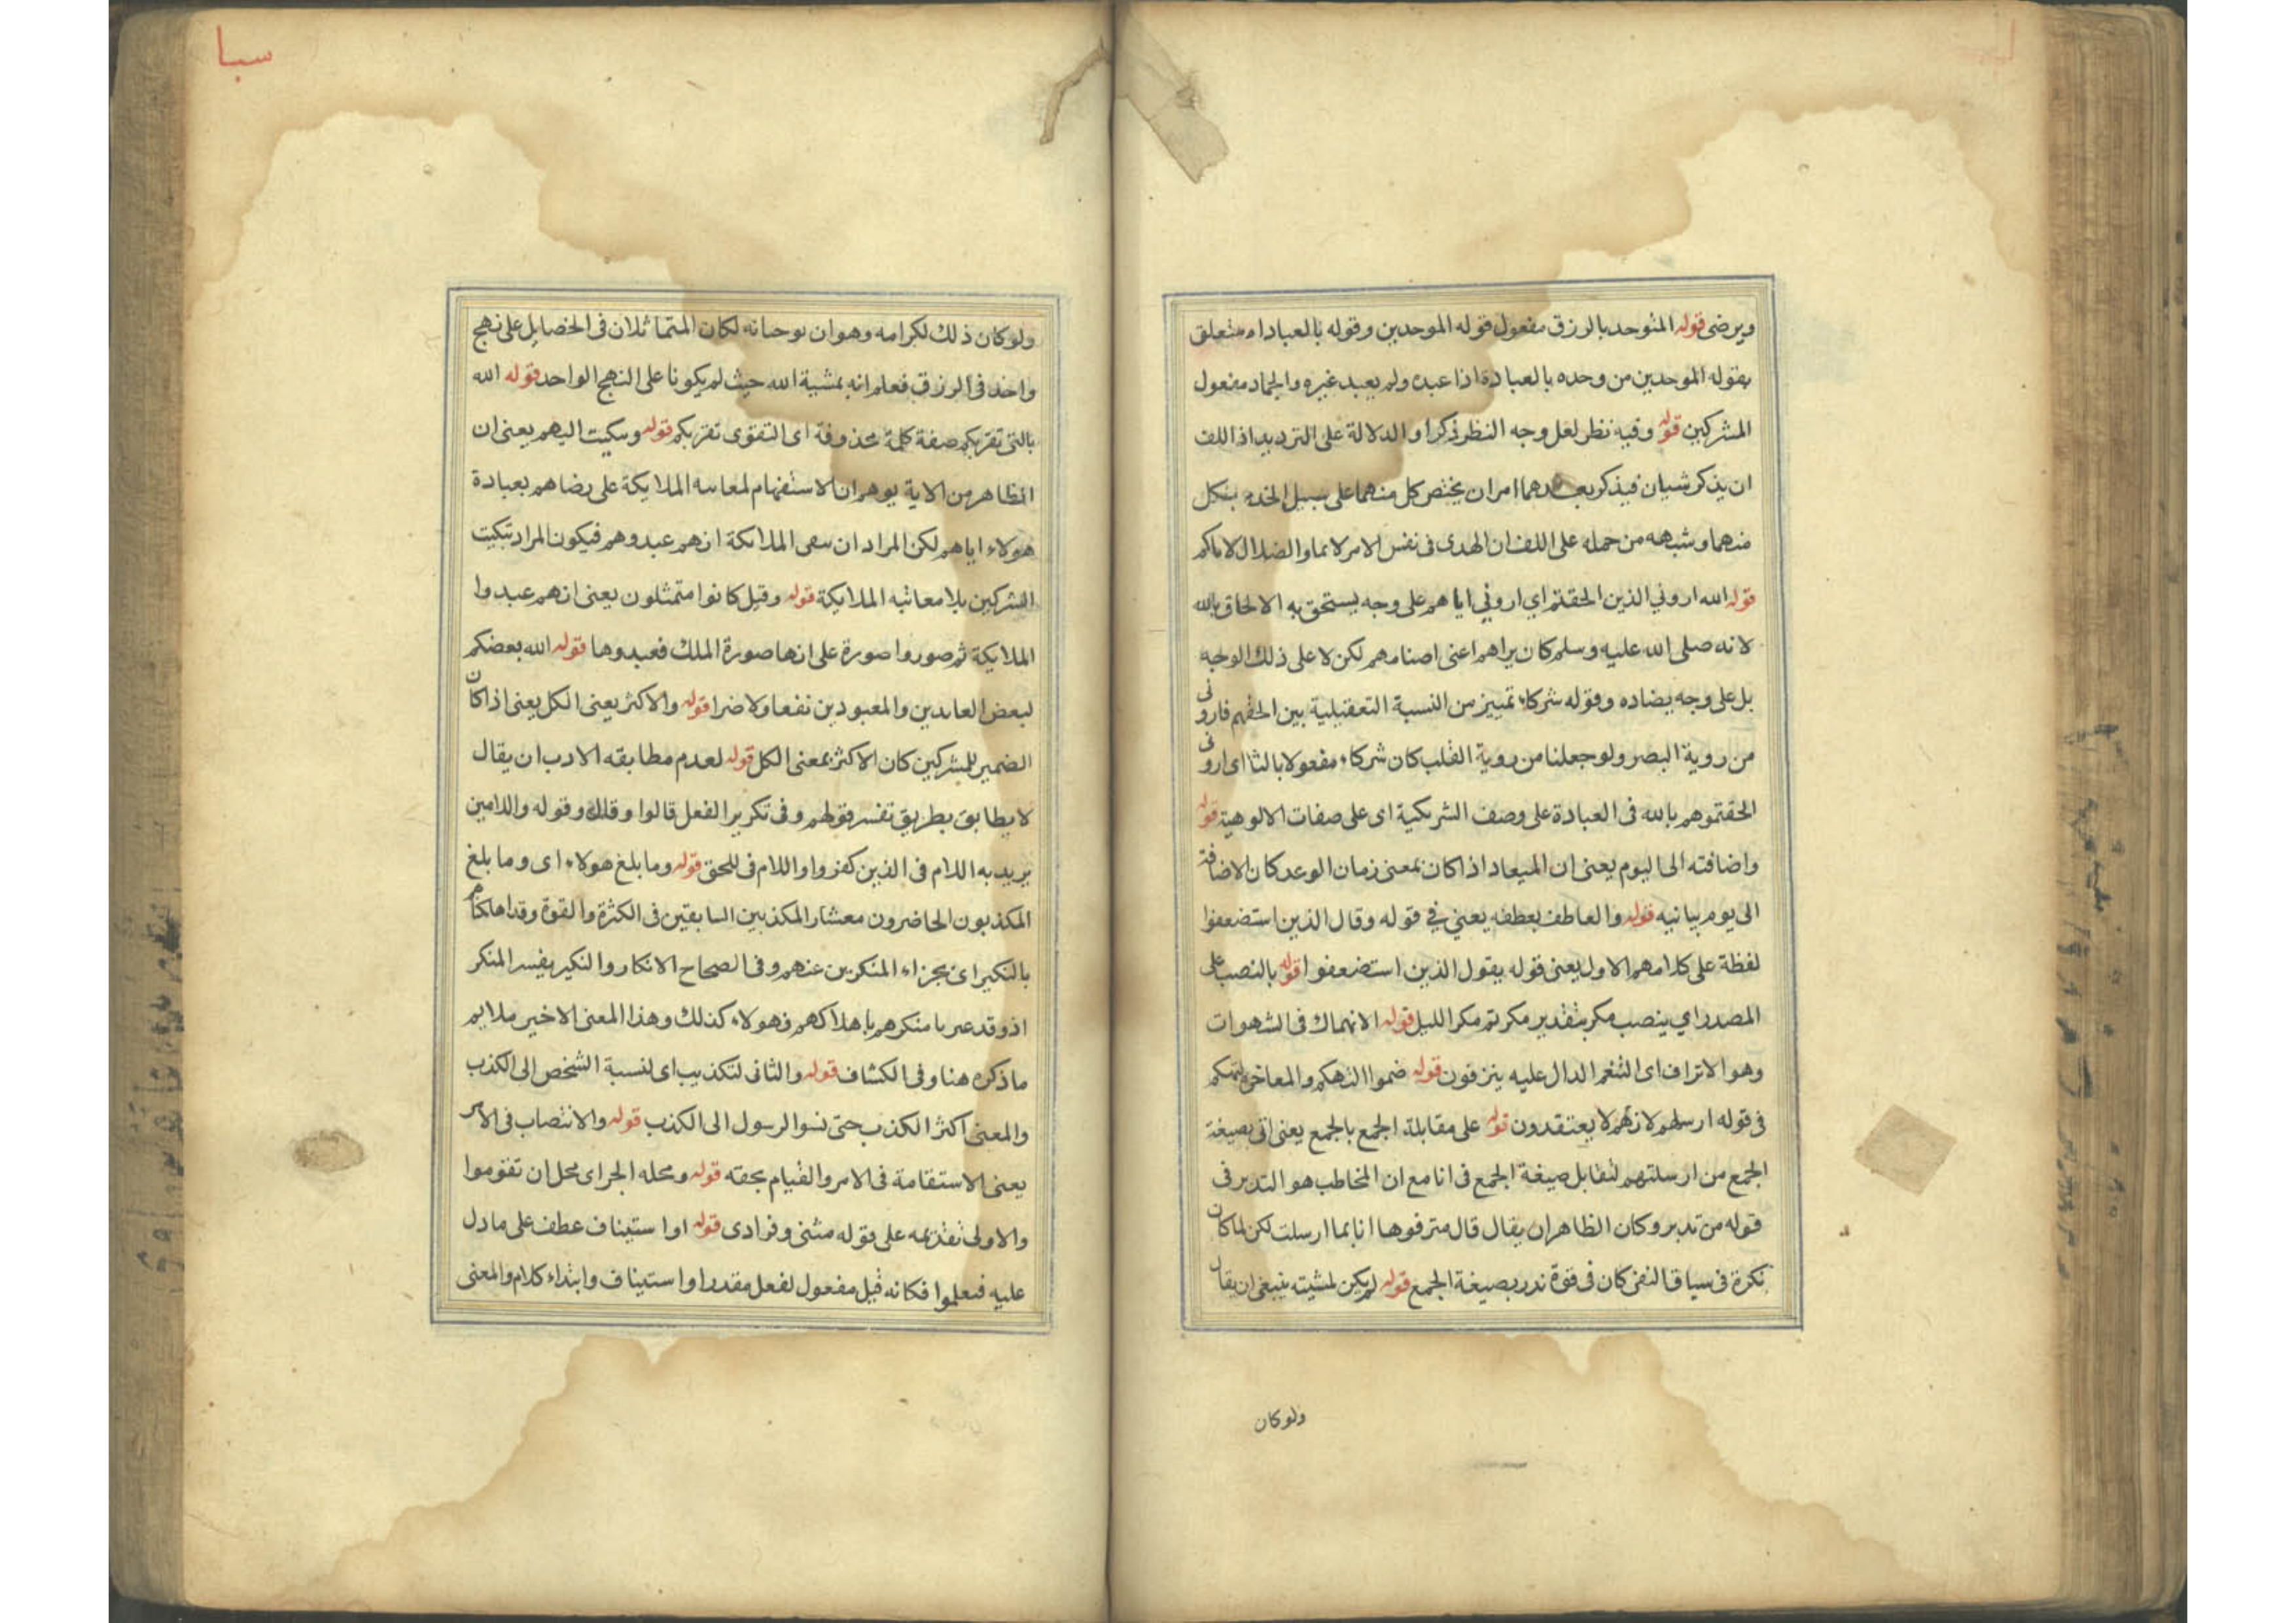 ويرضى قوله المتوحد بالرزق مفعول قوله الموحدين وقوله بالعباداه متعلق
بقوله الموحدين من وحده بالعبادة اذا عبده ولم يعبد غيره والجماد مفعول
المشركين قوله وفيه نظر لعل وجه النظر ذكرا والدلالة على الترديد اذا اللف
ان يذكر شيان فيذكر بعدهما امران يختص كل منهما على سبيل
منهما وشبهه من حمله على اللف ان الهدى فى نفس الامر لانما والضلال لاياكم
قوله الله اروني الذين الحقتم اي اروني اياهم على وجه يستحق به الالحاق بالله
لانه صلى الله عليه وسلم كان يراهم اعنى اصنامهم لكن لا على ذلك الوجه
بل على وجه يضاده وقوله شركاء تمييز من النسبة بين الحقهم فارونى
من روية البصر ولو جعلنا من روية القلب كان شركاء مفعولا بالثا اى ارونى
الحقتموهم بالله فى العبادة على وصف الشريكية اى على صفات الالوهية قوله
واضافته الى اليوم يعنى ان الميعاد اذا كان بمعنى زمان الوعد كان الاضافة
الى يوم بيانيه قوله والعاطف بعطفه يعني في قوله وقال الذين استضعفوا
لفظة على كلامهم الاول يعنى قوله يقول الذين استضعفوا قوله بالنصب على
المصدر اي ينصب مكر بتقدير مكرتم مكر الليل قوله الانهماك فى الشهوات
وهو الاتراف اى التنعم الدال عليه ينزفون قوله ضموا التهكم والمفاخر بتهكم
فى قوله ارسلهم لانهم لا يعتقدون قوله على مقابلة الجمع بالجمع يعنى اتى بصيغة
الجمع من ارسلتهم لتقابل صيغة الجمع فى انا مع ان المخاطب هو التدبر فى
قوله من تدبر وكان الظاهر ان يقال قال مترفوها انا بما ارسلت لكن لما كان
نكرة فى سياق النفى كان فى قوة ندر بصيغة الجمع قوله لم يكن لمشيته ينبغى ان يقال
ولو كان
سبا
ولو كان ذلك لكرامه وهوان يوحبانه لكان المتماثلان فى الخصايل على نهج
واحد فى الرزق فعلم انه بمشية الله حيث لم يكونا على النهج الواحد قوله الله
بالتى تقربكم صفة كلمة محذوفة اى التقوى تقربكم قوله وتبكيت اليهم يعنى ان
الظاهر من الاية يوهم ان الاستفهام لمعاتبه الملايكة على رضاهم بعبادة
هولاء اياهم لكن المراد ان ينفى الملائكة انهم عبدوهم فيكون المراد تبكيت
المشركين بلا معاتبه الملايكة قوله وقيل كانوا متمثلون يعنى انهم عبدوا
الملايكة ثم صوروا صورة على انها صورة الملك فعبدوها قوله الله بعضكم
لبعض العابدين والمعبودين نفعا ولا ضرا قوله والاكثر يعنى الكل يعنى اذا كان
الضمير للمشركين كان الاكثر بمعنى الكل قوله لعدم مطابقه الادب ان يقال
لا يطابق بطريق تفسر قولهم وفى تكرير الفعل قالوا وقال وقوله والدامين
يريد به اللام فى الذين كفروا واللام فى للحق قوله وما بلغ هولاء اى وما بلغ
المكذبون الحاضرون معشار المكذبين السابقين فى الكثرة والقوة وقد اهلكناهم
بالنكير اى بجزاء المنكرين عنهم وفى الصحاح الانكار والنكير بفيسر المنكر
اذ وقد عبر با منكرهم باهلاكهم فهولاء كذلك وهذا المعنى الاخير ملايم
ما ذكره هنا وفى الكشاف قوله والثانى لتكذيب اى لنسبة الشخص الى الكذب
والمعنى اكثر الكذب حتى نسوا الرسول الى الكذب قوله والانتصاب فى الامر
يعنى الاستقامة فى الامر والقيام بحقه قوله ومحله الجر اى محل ان تقوموا
والاولى تقديمه على قوله مثنى وفرادى قوله او استيناف عطف على ما دل
عليه فيعلموا فكانه قيل مفعول لفعل مقدر او استيناف وابتداء كلام والمعنى